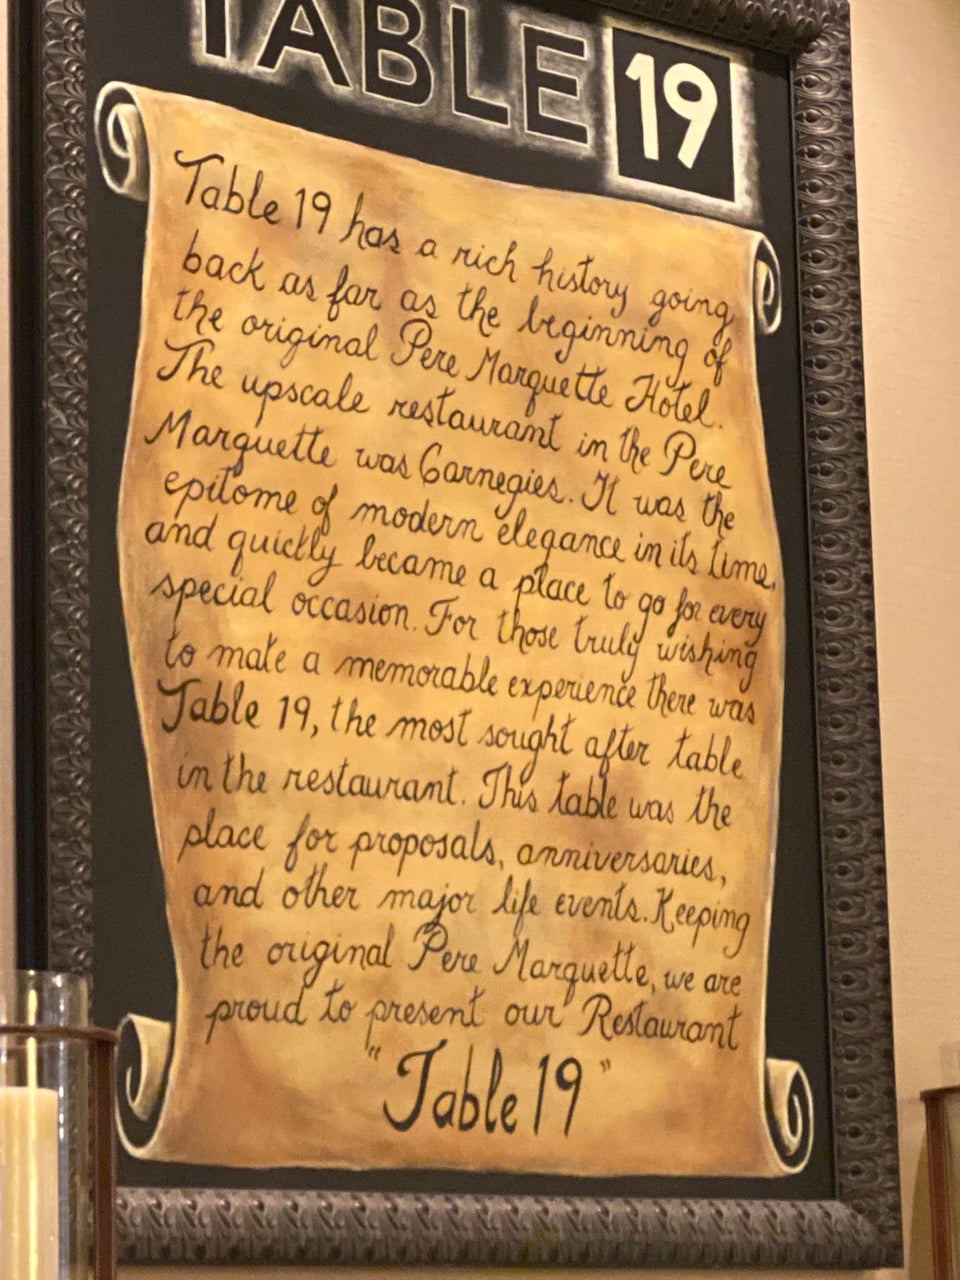 TABLE 19
Table 19 has a rich history going
back as far as the beginning of
the original Pere Marquette Hotel.
The upscale restaurant in the Pere
Marquette was Carnegies. It was the
epitome of modern elegance in its time,
and quickly became a place to go for every
special occasion. For those truly wishing
to make a memorable experience there was
Table 19, the most sought after table
in the restaurant. This table was the
place for proposals, anniversaries,
and other major life events. Keeping
the original Pere Marquette, we are
proud to present our Restaurant
"Table 19"